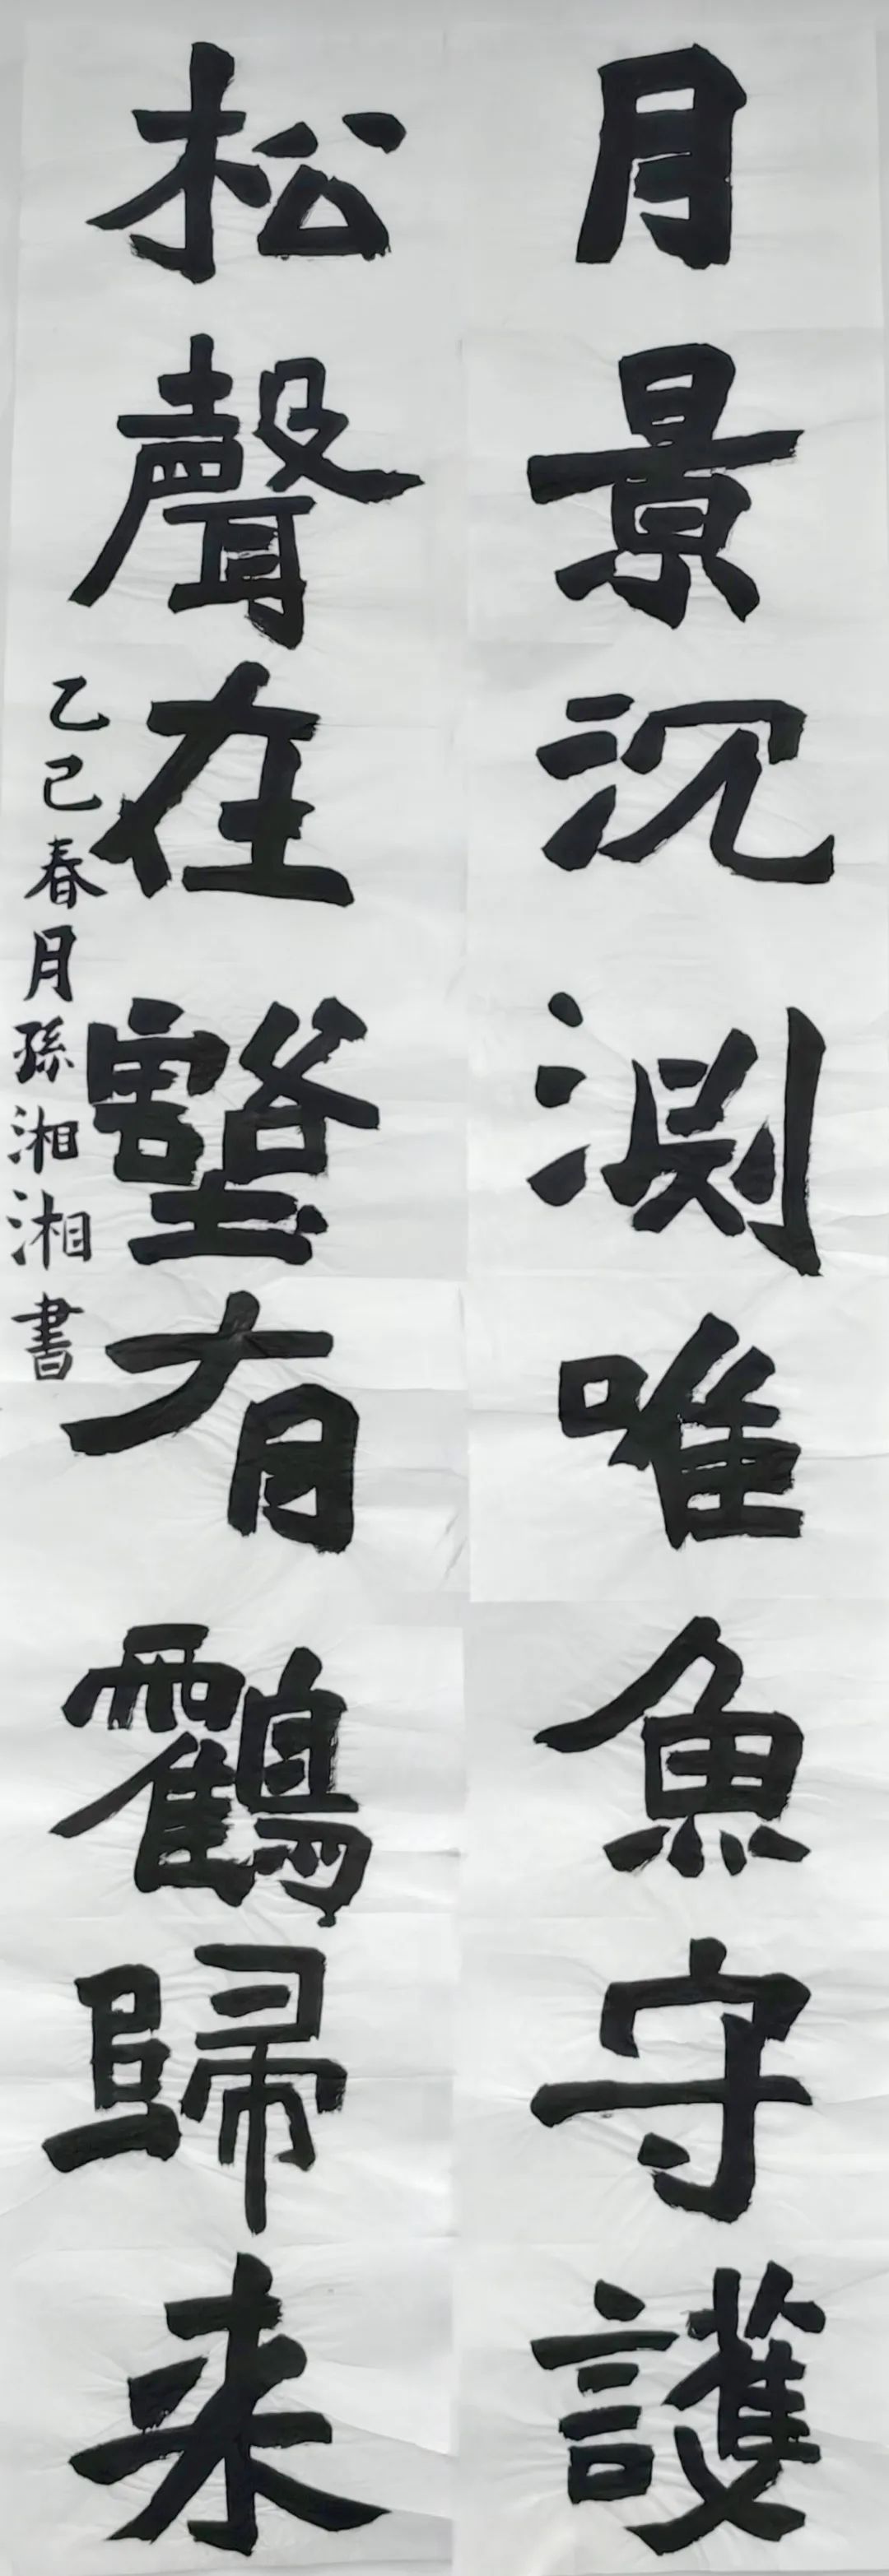 月景沉渕唯魚守護
松聲在壑有鸖歸来
乙巳春月孫湘湘書